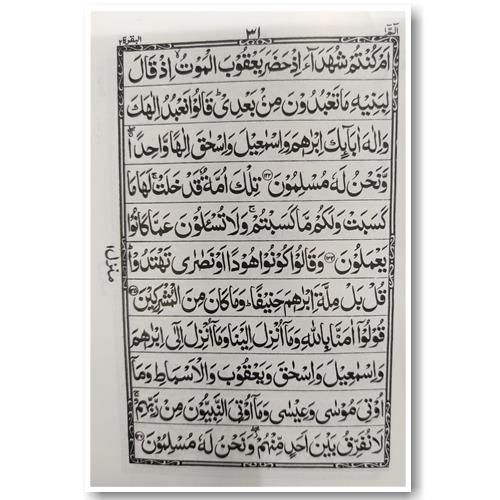 الٓمّٓ ١ ٣١ البقرة ٢
اَمۡ كُنۡتُمۡ شُهَدَآءَ اِذۡ حَضَرَ يَعۡقُوۡبَ الۡمَوۡتُ اِذۡ قَالَ
لِبَنِيۡهِ مَا تَعۡبُدُوۡنَ مِنۡۢ بَعۡدِىۡ قَالُوۡا نَعۡبُدُ اِلٰهَكَ
وَاِلٰهَ اٰبَآئِكَ اِبۡرٰهٖمَ وَاِسۡمٰعِيۡلَ وَاِسۡحٰقَ اِلٰهًا وَّاحِدًا
وَّنَحۡنُ لَهٗ مُسۡلِمُوۡنَ ﴿۱۳۳﴾ تِلۡكَ اُمَّةٌ قَدۡ خَلَتۡ لَهَا مَا
كَسَبَتۡ وَلَكُمۡ مَّا كَسَبۡتُمۡ وَلَا تُسۡـَٔلُوۡنَ عَمَّا كَانُوۡا
يَعۡمَلُوۡنَ ﴿۱۳۴﴾ وَقَالُوۡا كُوۡنُوۡا هُوۡدًا اَوۡ نَصٰرٰى تَهۡتَدُوۡا
منزل ١
قُلۡ بَلۡ مِلَّةَ اِبۡرٰهٖمَ حَنِيۡفًا وَمَا كَانَ مِنَ الۡمُشۡرِكِيۡنَ ﴿۱۳۵﴾
قُوۡلُوۡۤا اٰمَنَّا بِاللّٰهِ وَمَآ اُنۡزِلَ اِلَيۡنَا وَمَآ اُنۡزِلَ اِلٰٓى اِبۡرٰهٖمَ
وَاِسۡمٰعِيۡلَ وَاِسۡحٰقَ وَيَعۡقُوۡبَ وَالۡاَسۡبَاطِ وَمَآ
اُوۡتِىَ مُوۡسٰى وَعِيۡسٰى وَمَآ اُوۡتِىَ النَّبِيُّوۡنَ مِنۡ رَّبِّهِمۡ
لَا نُفَرِّقُ بَيۡنَ اَحَدٍ مِّنۡهُمۡ وَنَحۡنُ لَهٗ مُسۡلِمُوۡنَ ﴿۱۳۶﴾